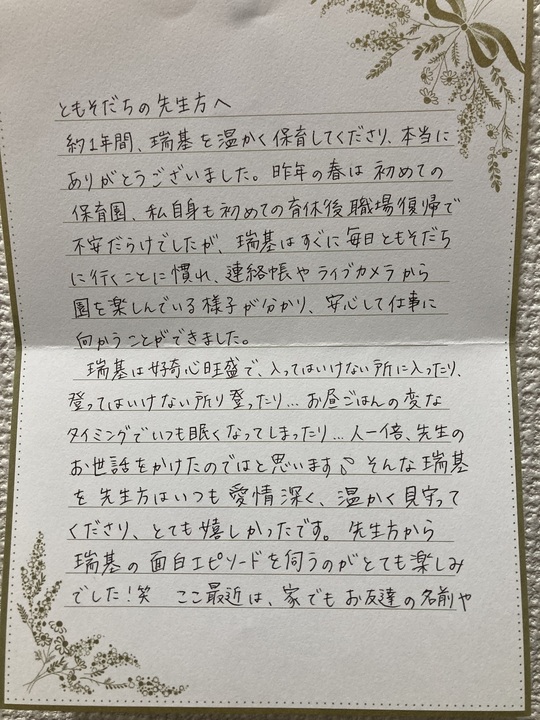 ともそだちの先生方へ
約1年間、瑞基を温かく保育してくださり、本当に
ありがとうございました。昨年の春は初めての
保育園、私自身も初めての育休後職場復帰で
不安だらけでしたが、瑞基はすぐに毎日ともそだち
に行くことに慣れ、連絡帳やライブカメラから
園を楽しんでいる様子が分かり、安心して仕事に
向かうことができました。
瑞基は好奇心旺盛で、入ってはいけない所に入ったり、
登ってはいけない所り登ったり…お昼ごはんの変な
タイミングでいつも眠くなってしまったり…人一倍、先生の
お世話をかけたのではと思います♪そんな瑞基
を先生方はいつも愛情深く、温かく見守って
くださり、とても嬉しかったです。先生方から
瑞基の面白エピソードを伺うのがとても楽しみ
でした!笑 ここ最近は、家でもお友達の名前や